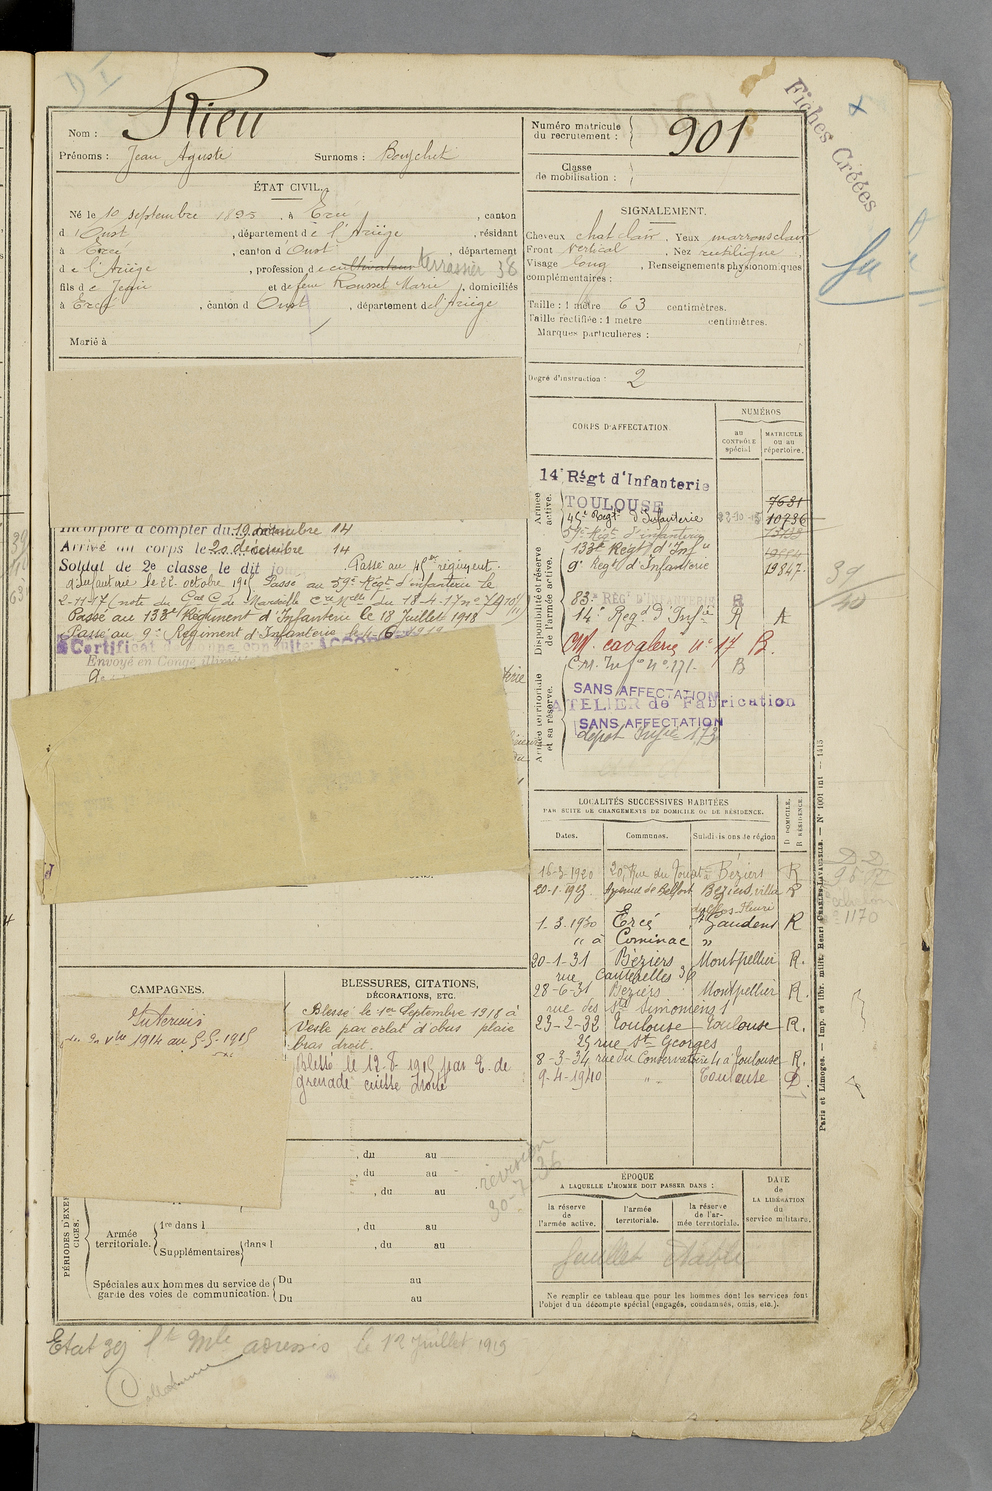 Rieu
Nom :
Prénoms : Jean Aguste Surnoms : Bouychet
ÉTAT CIVIL.
Né le 10 septembre 1895, à Ercé, canton
d'Oust, département de l'Ariège, résidant
à Ercé, canton d'Oust, département
de l'Ariège, profession de cultivateur terrassier 38
fils de Jean et de feue Rousset Marie, domiciliés
à Ercé, canton d Oust, département de l'Ariège
Marié à
Incorporé à compter du 19 décembre 14
Arrivé au corps le 20 décembre 14
Soldat de 2e classe le dit jour. Passé au 45e régiment.
d'Infanterie le 22 octobre 1915 Passé au 59e Régt d'infanterie le
2-11-17 (note du Gal C de Marseille du 18-4-17 n°
Passé au 133e Régiment d'Infanterie le 18 Juillet 1918
Passé au 9e Régiment d'Infanterie le
Certificat de bonne conduite ACCORDÉ
Envoyé en Congé illimité
CAMPAGNES.
Intérieur
1914 au 5-5-1915
BLESSURES, CITATIONS,
DÉCORATIONS, ETC.
Blessé le 1er Septembre 1918 à
Vesle par éclat d'obus plaie
bras droit.
Blessé le 12-8-1915 par E. de
grenade cuisse droite
, du au
, du au
, du au
PÉRIODES D'EXERCICES.
Armée territoriale.
1re dans l , du au
Supplémentaires dans l , du au
Spéciales aux hommes du service de garde des voies de communication.
Du au
Du au
révision
Etat adressé le 12 juillet 1919
Numéro matricule du recrutement : 901
Classe de mobilisation :
SIGNALEMENT.
Cheveux chat clair. Yeux marrons clair
Front vertical. Nez rectiligne
Visage long, Renseignements physionomiques
complémentaires :
Taille : 1 mètre 63 centimètres.
Taille rectifiée : 1 mètre centimètres.
Marques particulières :
Degré d'instruction : 2
CORPS D'AFFECTATION
NUMÉROS
au CONTRÔLE spécial
MATRICULE ou au répertoire.
Armée active.
14e Régt d'Infanterie
TOULOUSE
7631
45e Regt d'Infanterie 10736
59e Regt d'infanterie
133e Régt d'Infie
9e Regt d'Infanterie 19847
Disponibilité et réserve de l'armée active.
83e RÉGT D'INFANTERIE R
14e Reg. D'Infie R A
CM. cavalerie n° 17 B.
C.M. Infie n° 171 B
Armée territoriale et sa réserve.
SANS AFFECTATION
ATELIER de Fabrication
SANS AFFECTATION
dépôt Infie 173
LOCALITÉS SUCCESSIVES HABITÉES
PAR SUITE DE CHANGEMENTS DE DOMICILE OU DE RÉSIDENCE.
Dates. Communes. Subdivisions de région
D DOMICILE. R RÉSIDENCE.
16-3-1920 20, Rue du Béziers R
Avenue de Belfort Béziers villa R
du Clos Henri
1-3-1930 Ercé St Gaudens R
" à Cominac "
20-1-31 Béziers Montpellier R.
rue Canterelles 36
28-6-31 Béziers Montpellier R.
rue des St Simoniens 1
23-2-32 Toulouse Toulouse R.
25 rue St Georges
8-3-34 rue du Conservatoire 4 à Toulouse R.
9-4-1940 " Toulouse D
ÉPOQUE
A LAQUELLE L'HOMME DOIT PASSER DANS :
la réserve de l'armée active.
l'armée territoriale.
la réserve de l'armée territoriale.
DATE de LA LIBÉRATION du service militaire.
feuillet établi
Ne remplir ce tableau que pour les hommes dont les services font
l'objet d'un décompte spécial (engagés, condamnés, omis, etc.).
Fiches Créées
39/40
Paris et Limoges. — Imp. et libr. milit. Henri CHARLES-LAVAUZELLE. — N° 1001 int — 1415